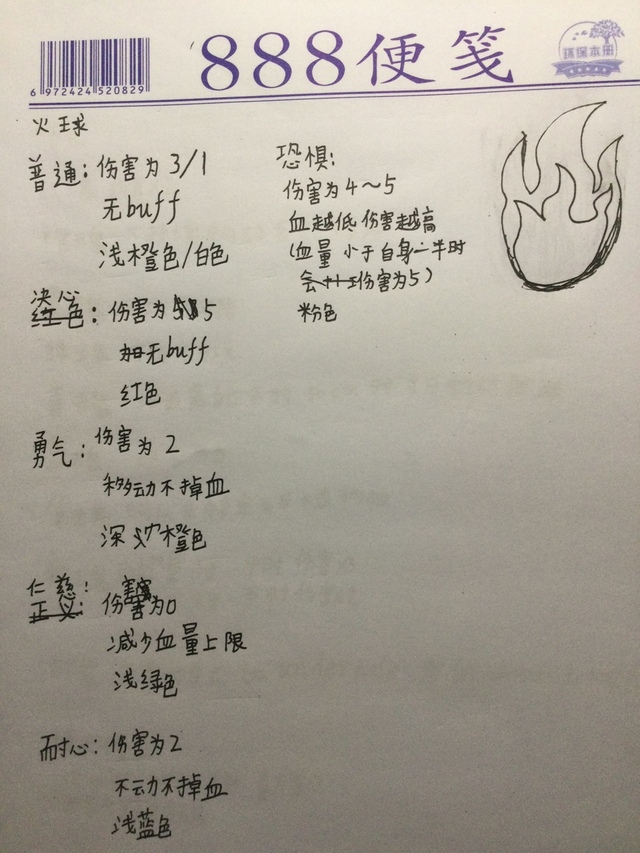 888便笺
环保本册
6 972424 520829
火球
普通：伤害为 3/1
无buff
浅橙色/白色
决心
红色：伤害为 5
无buff
红色
勇气：伤害为 2
移动不掉血
深橙色
仁慈：
正义：伤害为0
减少血量上限
浅绿色
耐心：伤害为2
不动不掉血
浅蓝色
恐惧：
伤害为4～5
血越低伤害越高
(血量小于自身一半时
会伤害为5)
粉色